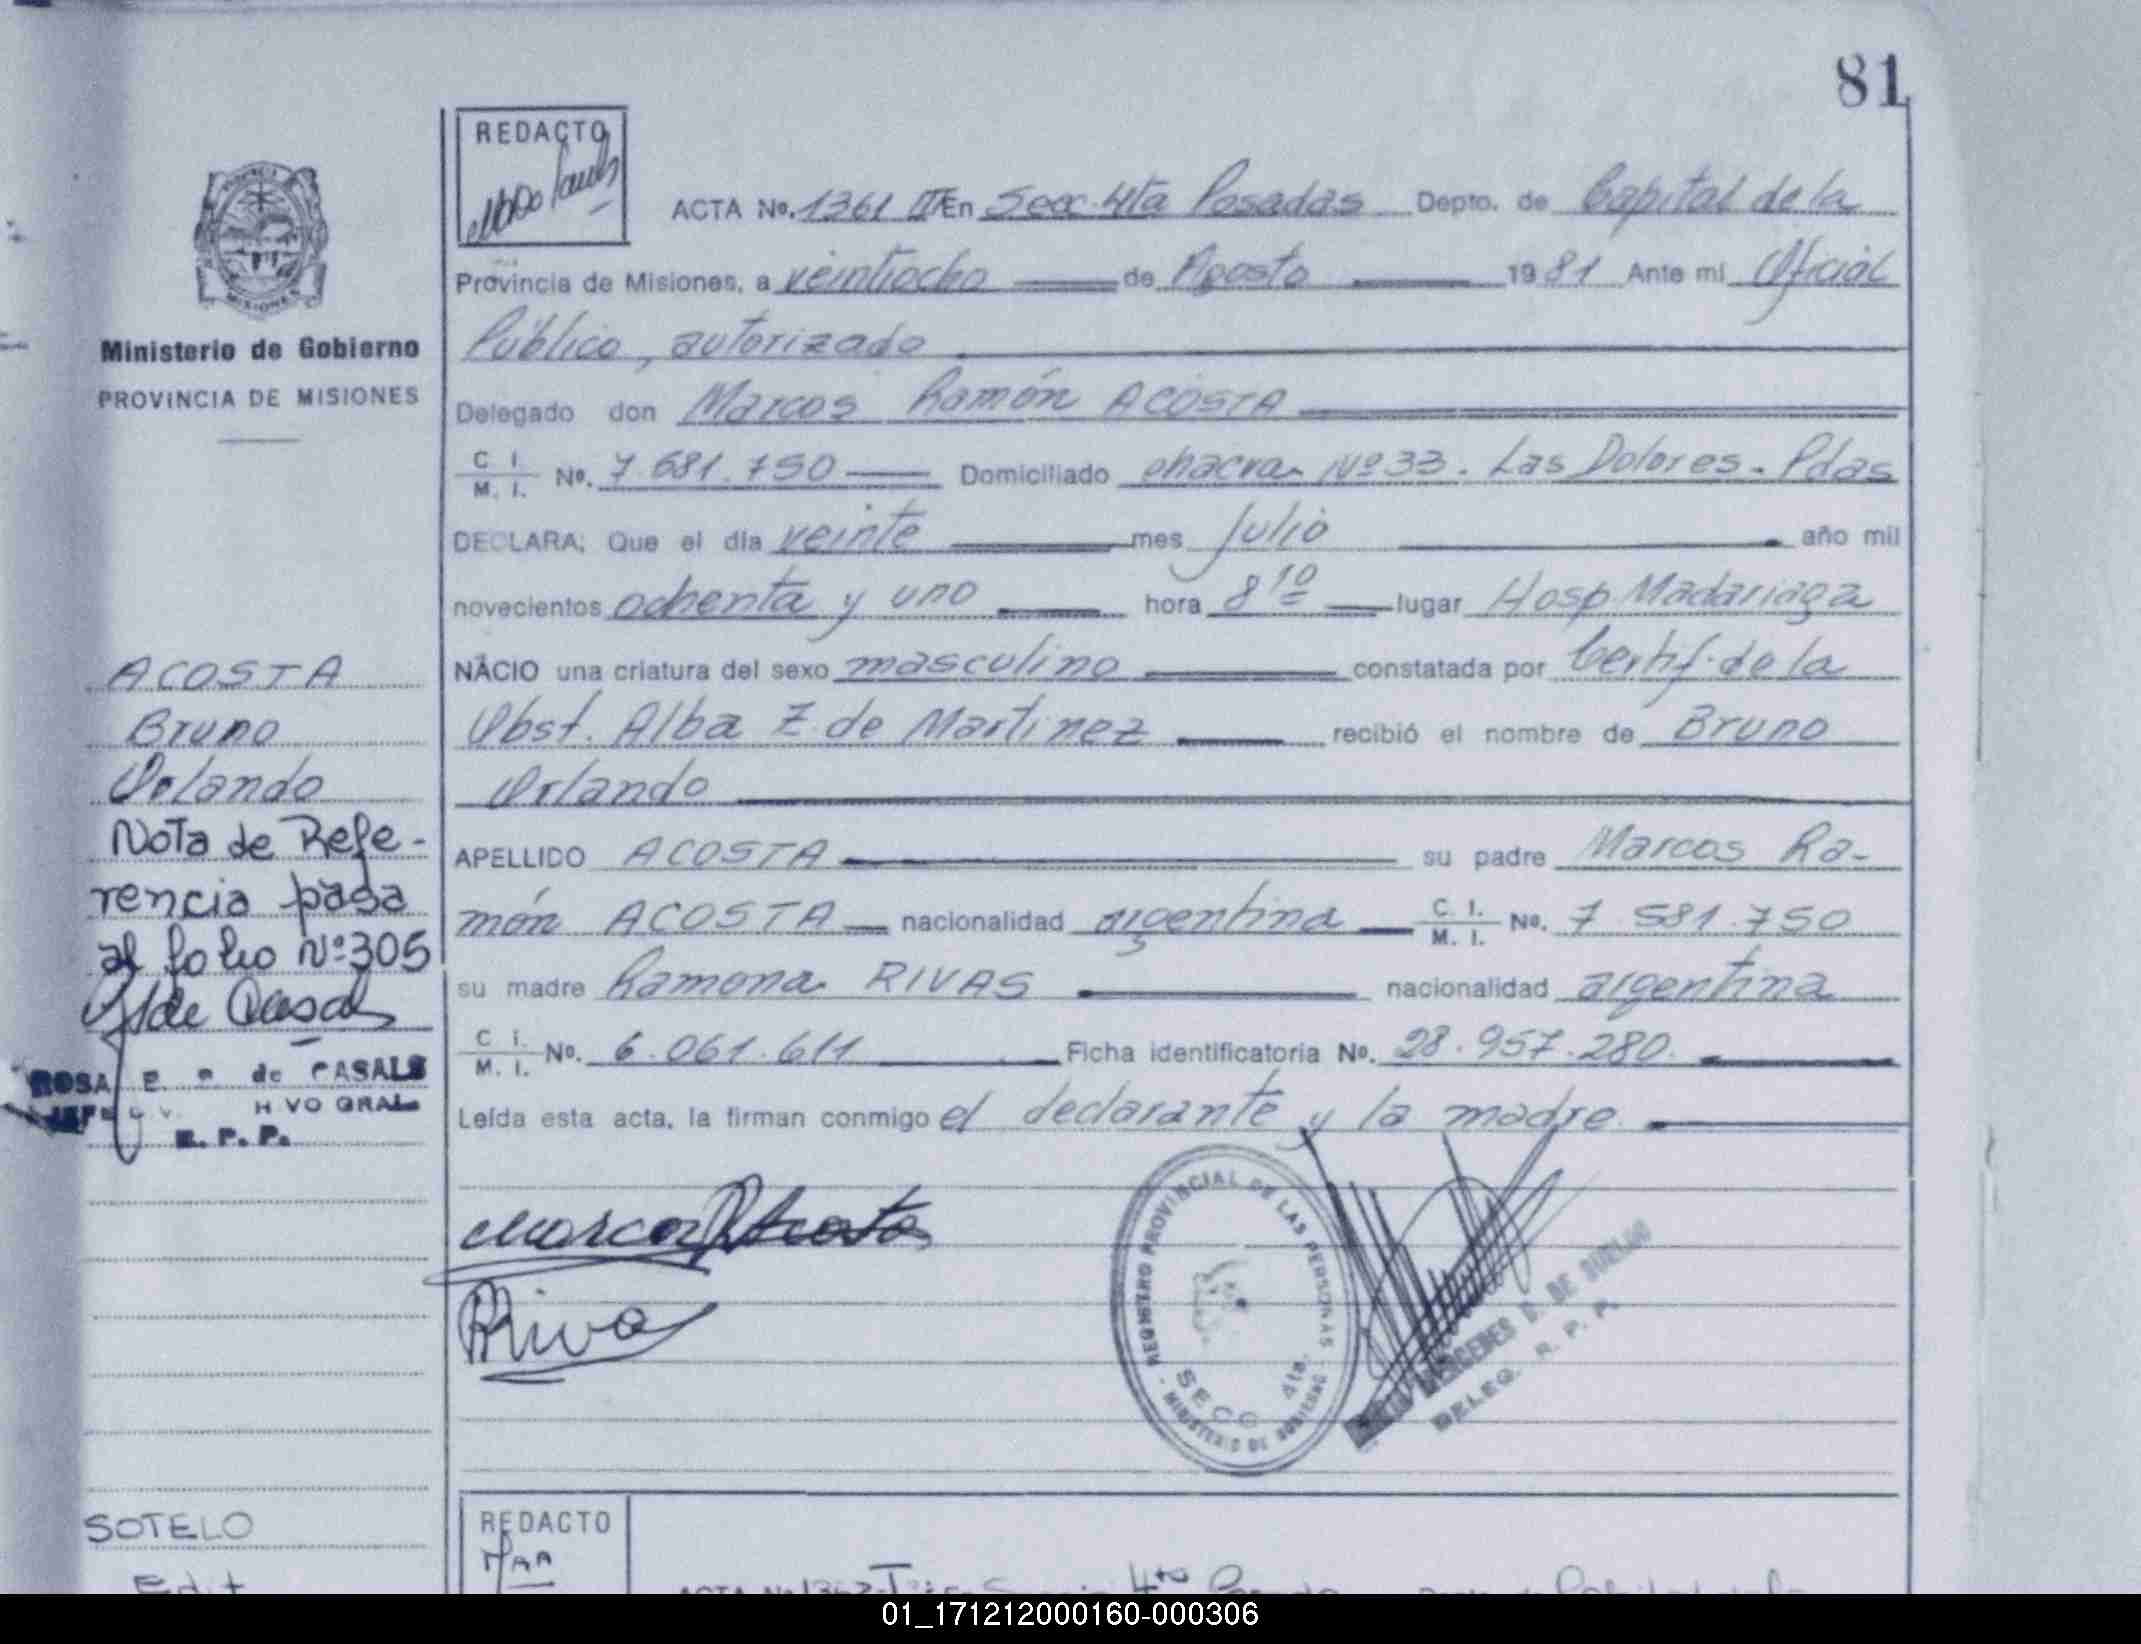 81
REDACTO
ACTA No. 1361 II En Secc. 4ta Posadas Depto. de Capital de la
Provincia de Misiones, a veintiocho de Agosto 1981 Ante mi Oficial
Público, autorizado
Delegado don Marcos Ramón ACOSTA
C. I. M. I. No. 7.681.750 Domiciliado chacra Nº 33. Las Dolores. Pdas
DECLARA; Que el día veinte mes Julio año mil
novecientos ochenta y uno hora 8 10 lugar Hosp Madariaga
NACIO una criatura del sexo masculino constatada por Certif. de la
Obst. Alba Z. de Martinez recibió el nombre de Bruno
Orlando
APELLIDO ACOSTA su padre Marcos Ra-
món ACOSTA nacionalidad argentina C. I. M. I. No. 7 581.750
su madre Ramona RIVAS nacionalidad argentina
C. I. M. I. No. 6.061.611 Ficha identificatoria No. 28.957.280.
Leída esta acta, la firman conmigo el declarante y la madre.
Marcos R Acosta
RRivas
REGISTRO PROVINCIAL DE LAS PERSONAS
MINISTERIO DE GOBIERNO
SECC 4ta.
MERCEDES DE
DELEG. R. P. P.
PROVINCIA
MISIONES
Ministerio de Gobierno
PROVINCIA DE MISIONES
ACOSTA
Bruno
Orlando
Nota de Refe-
rencia pasa
al folio Nº 305
ROSA E. de CASALS
JEFE HVO GRAL
R. P. P.
SOTELO
Edit
REDACTO
ACTA No 1362
01_171212000160-000306